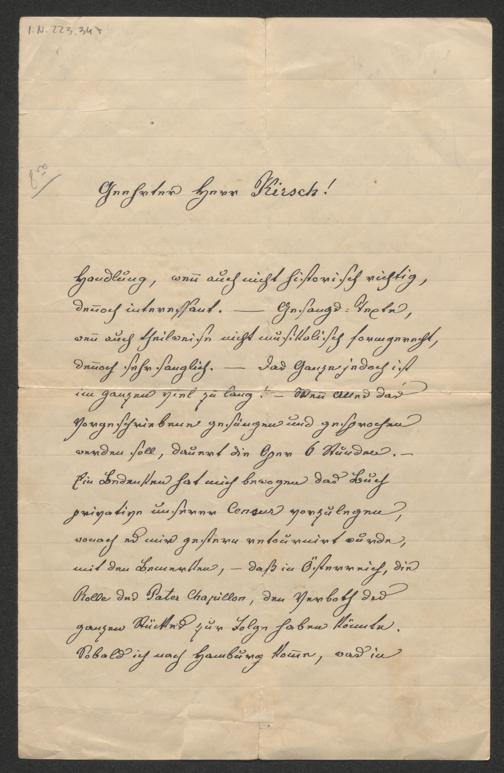 I.N. 223.347
Geehrter Herr Kirsch!
Handlung, weñ auch nicht historisch richtig,
deñoch interessant. — Gesangs-Texte,
weñ auch theilweise nicht musikalisch formgerecht,
deñoch sehr sanglich. — Das Ganze jedoch ist
im ganzen viel zu lang! — Weñ alles das
Vorgeschriebene gesungen und gesprochen
werden soll, dauert die Oper 6 Stunden. —
Ein Bedenken hat mich bewogen das Buch
privative unserer Censur vorzulegen,
wonach es mir gestern retournirt wurde,
mit den Bemerken, — daß in Österreich, die
Rolle des Pater Chapillon, den Verboth des
ganzen Stückes zur Folge haben könnte.
Sobald ich nach Hamburg kom̃e, was in